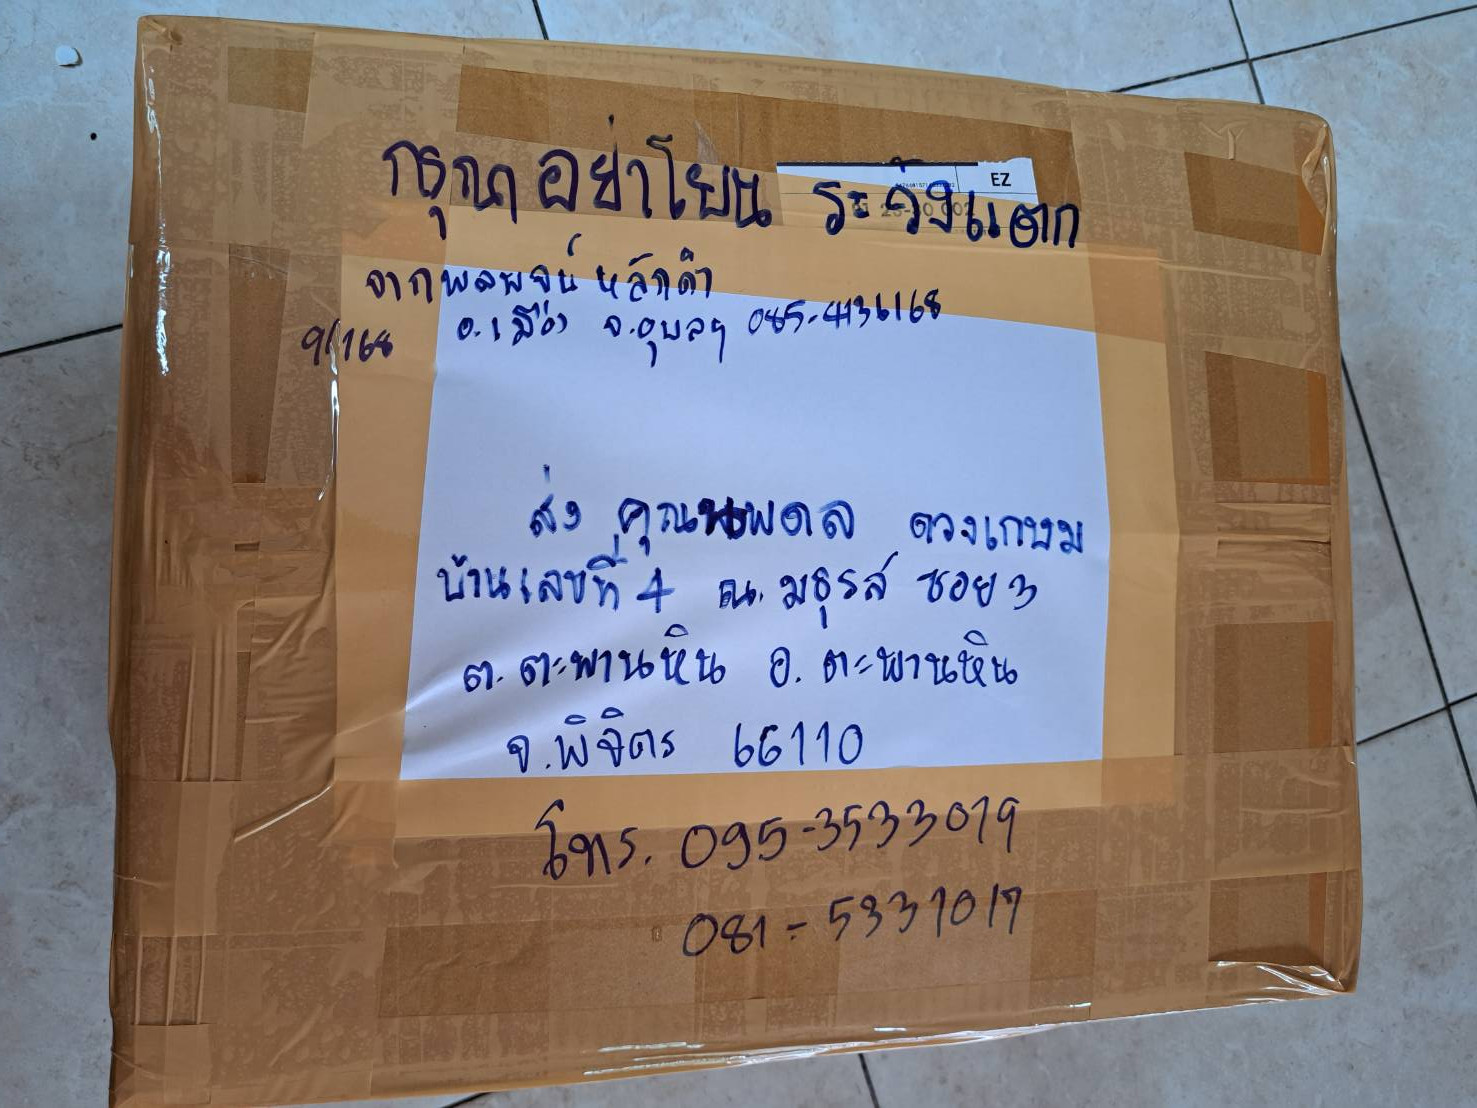 กรุณาอย่าโยน ระวังแตก
EZ
จากพลพจน์ หลักคำ
9/168 อ.เมือง จ.อุบลฯ 085-4136168
ส่ง คุณนพดล ดวงเกษม
บ้านเลขที่ 4 ถ.มธุรส ซอย 3
ต.ตะพานหิน อ.ตะพานหิน
จ.พิจิตร 66110
โทร. 095-3533019
081-5337017